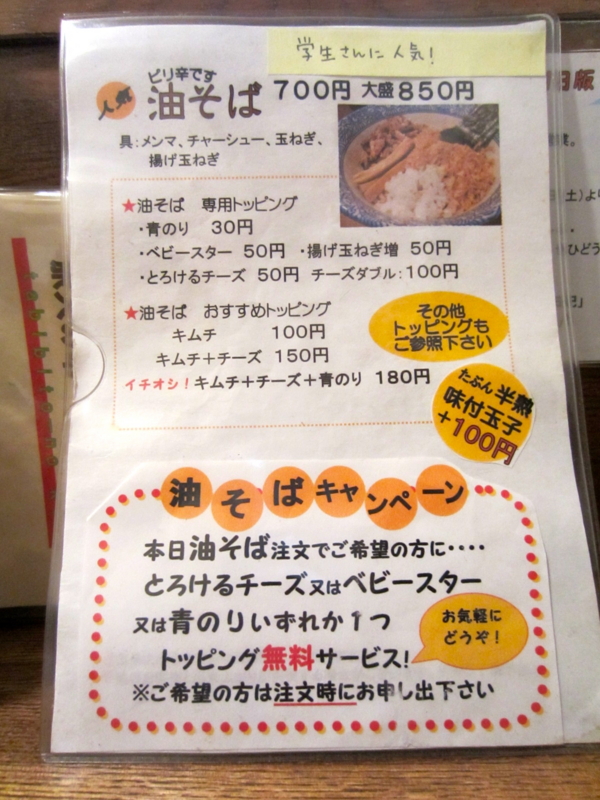 学生さんに人気!
ピリ辛です
人気 油そば 700円 大盛850円
具:メンマ、チャーシュー、玉ねぎ、
揚げ玉ねぎ
★油そば 専用トッピング
・青のり 30円
・ベビースター 50円 ・揚げ玉ねぎ増 50円
・とろけるチーズ 50円 チーズダブル:100円
★油そば おすすめトッピング
キムチ 100円
キムチ+チーズ 150円
イチオシ!キムチ+チーズ+青のり 180円
その他
トッピングも
ご参照下さい
たぶん半熟
味付玉子
+100円
油そばキャンペーン
本日油そば注文でご希望の方に‥‥
とろけるチーズ又はベビースター
又は青のりいずれか1つ
トッピング無料サービス!
お気軽に
どうぞ!
※ご希望の方は注文時にお申し出下さい